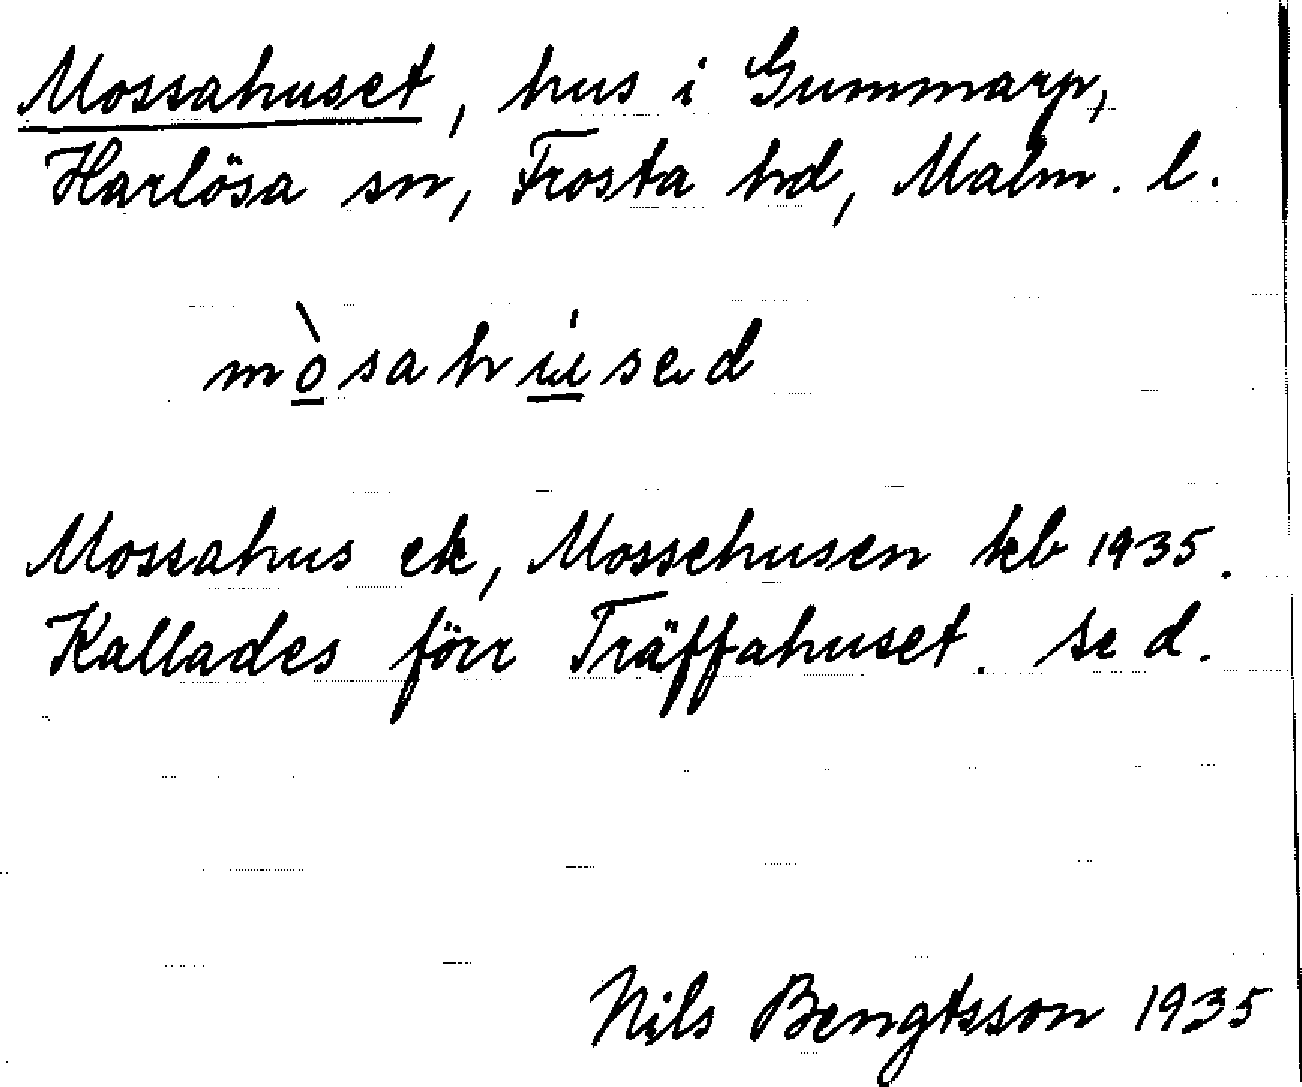 Mossahuset, hus i Gummarp,
Harlösa sn, Frosta hd, Malm. l.
mòsahúsed
Mossahus ek, Mossehusen kb 1935.
Kallades förr Träffahuset. se d.
Nils Bengtsson 1935